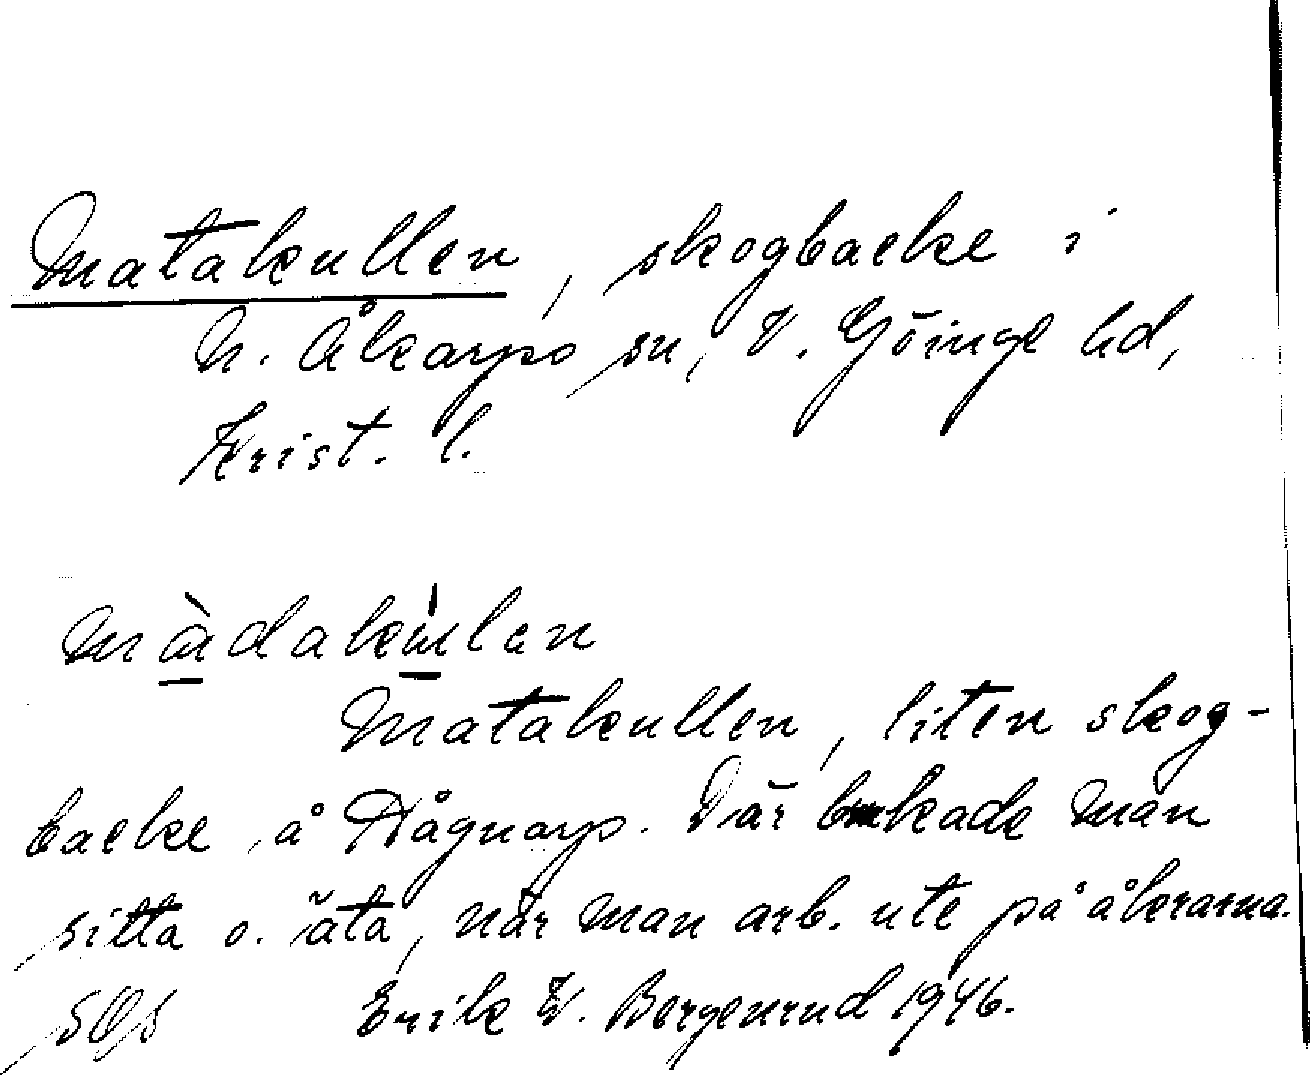 Matakullen, skogbacke i
N. Åkarps sn, V. Göinge hd,
Krist. l.
Matakullen, liten skog-
backe å Hågnarp. Där brukade man
sitta o. äta, när man arb. ute på åkrarna.
Erik W. Bergenrud 1946.